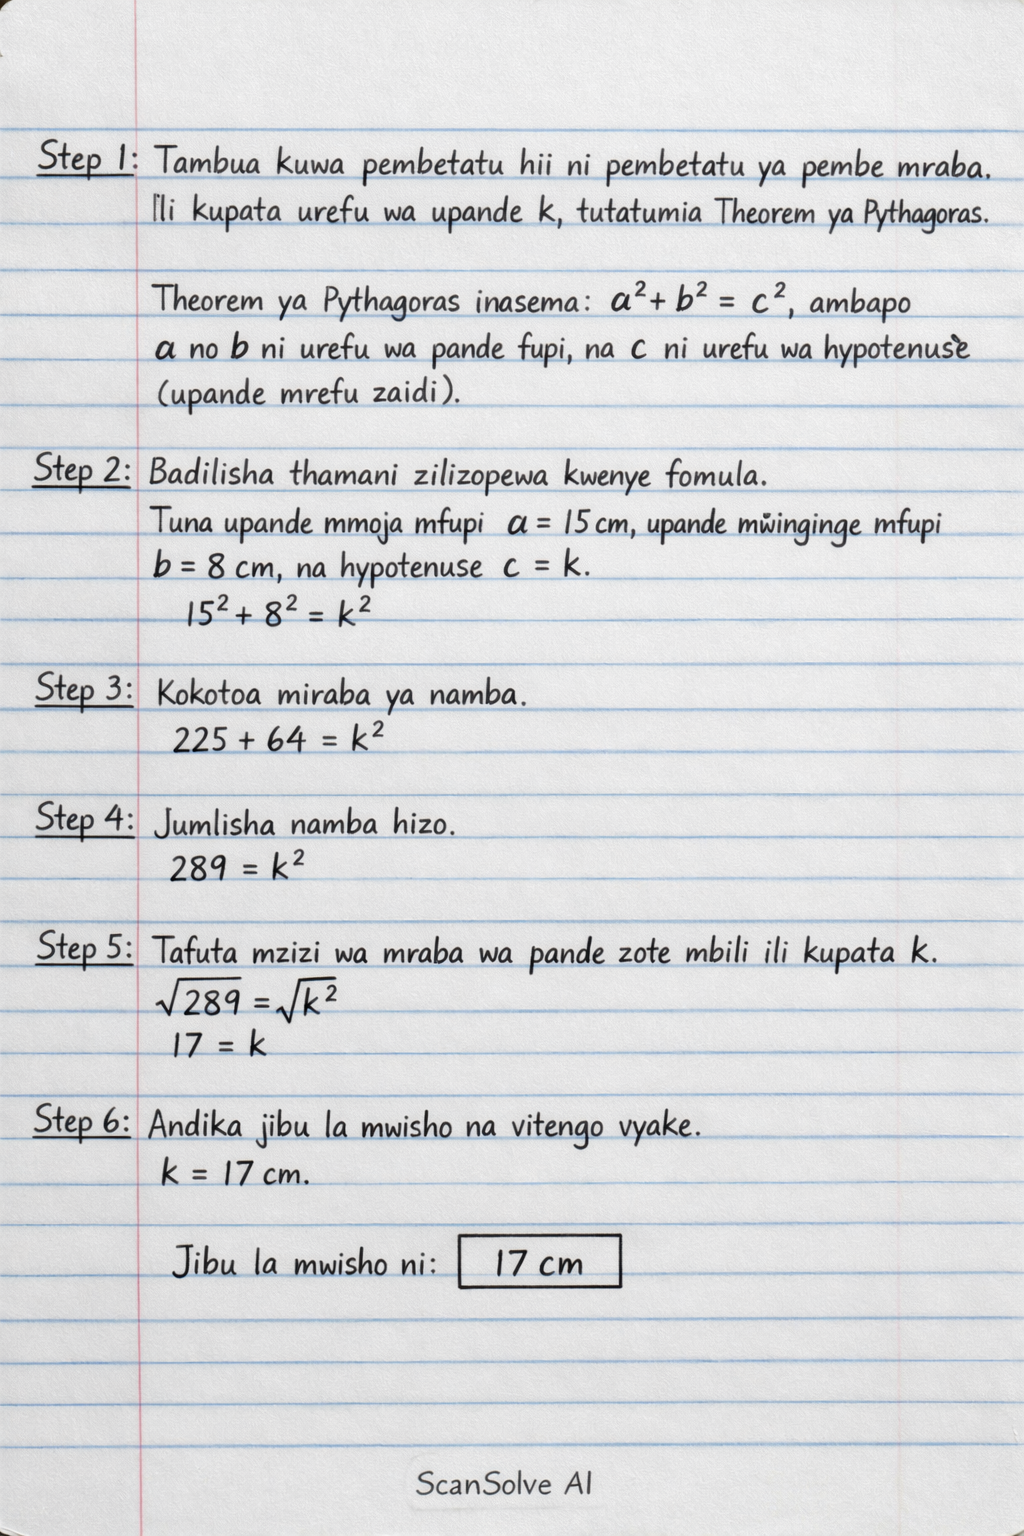 Step 1: Tambua kuwa pembetatu hii ni pembetatu ya pembe mraba.
Ili kupata urefu wa upande k, tutatumia Theorem ya Pythagoras.
Theorem ya Pythagoras inasema: a² + b² = c², ambapo
a no b ni urefu wa pande fupi, na c ni urefu wa hypotenuse
(upande mrefu zaidi).
Step 2: Badilisha thamani zilizopewa kwenye fomula.
Tuna upande mmoja mfupi a = 15 cm, upande mwinginge mfupi
b = 8 cm, na hypotenuse c = k.
15² + 8² = k²
Step 3: Kokotoa miraba ya namba.
225 + 64 = k²
Step 4: Jumlisha namba hizo.
289 = k²
Step 5: Tafuta mzizi wa mraba wa pande zote mbili ili kupata k.
√289 = √k²
17 = k
Step 6: Andika jibu la mwisho na vitengo vyake.
k = 17 cm.
Jibu la mwisho ni: 17 cm
ScanSolve AI